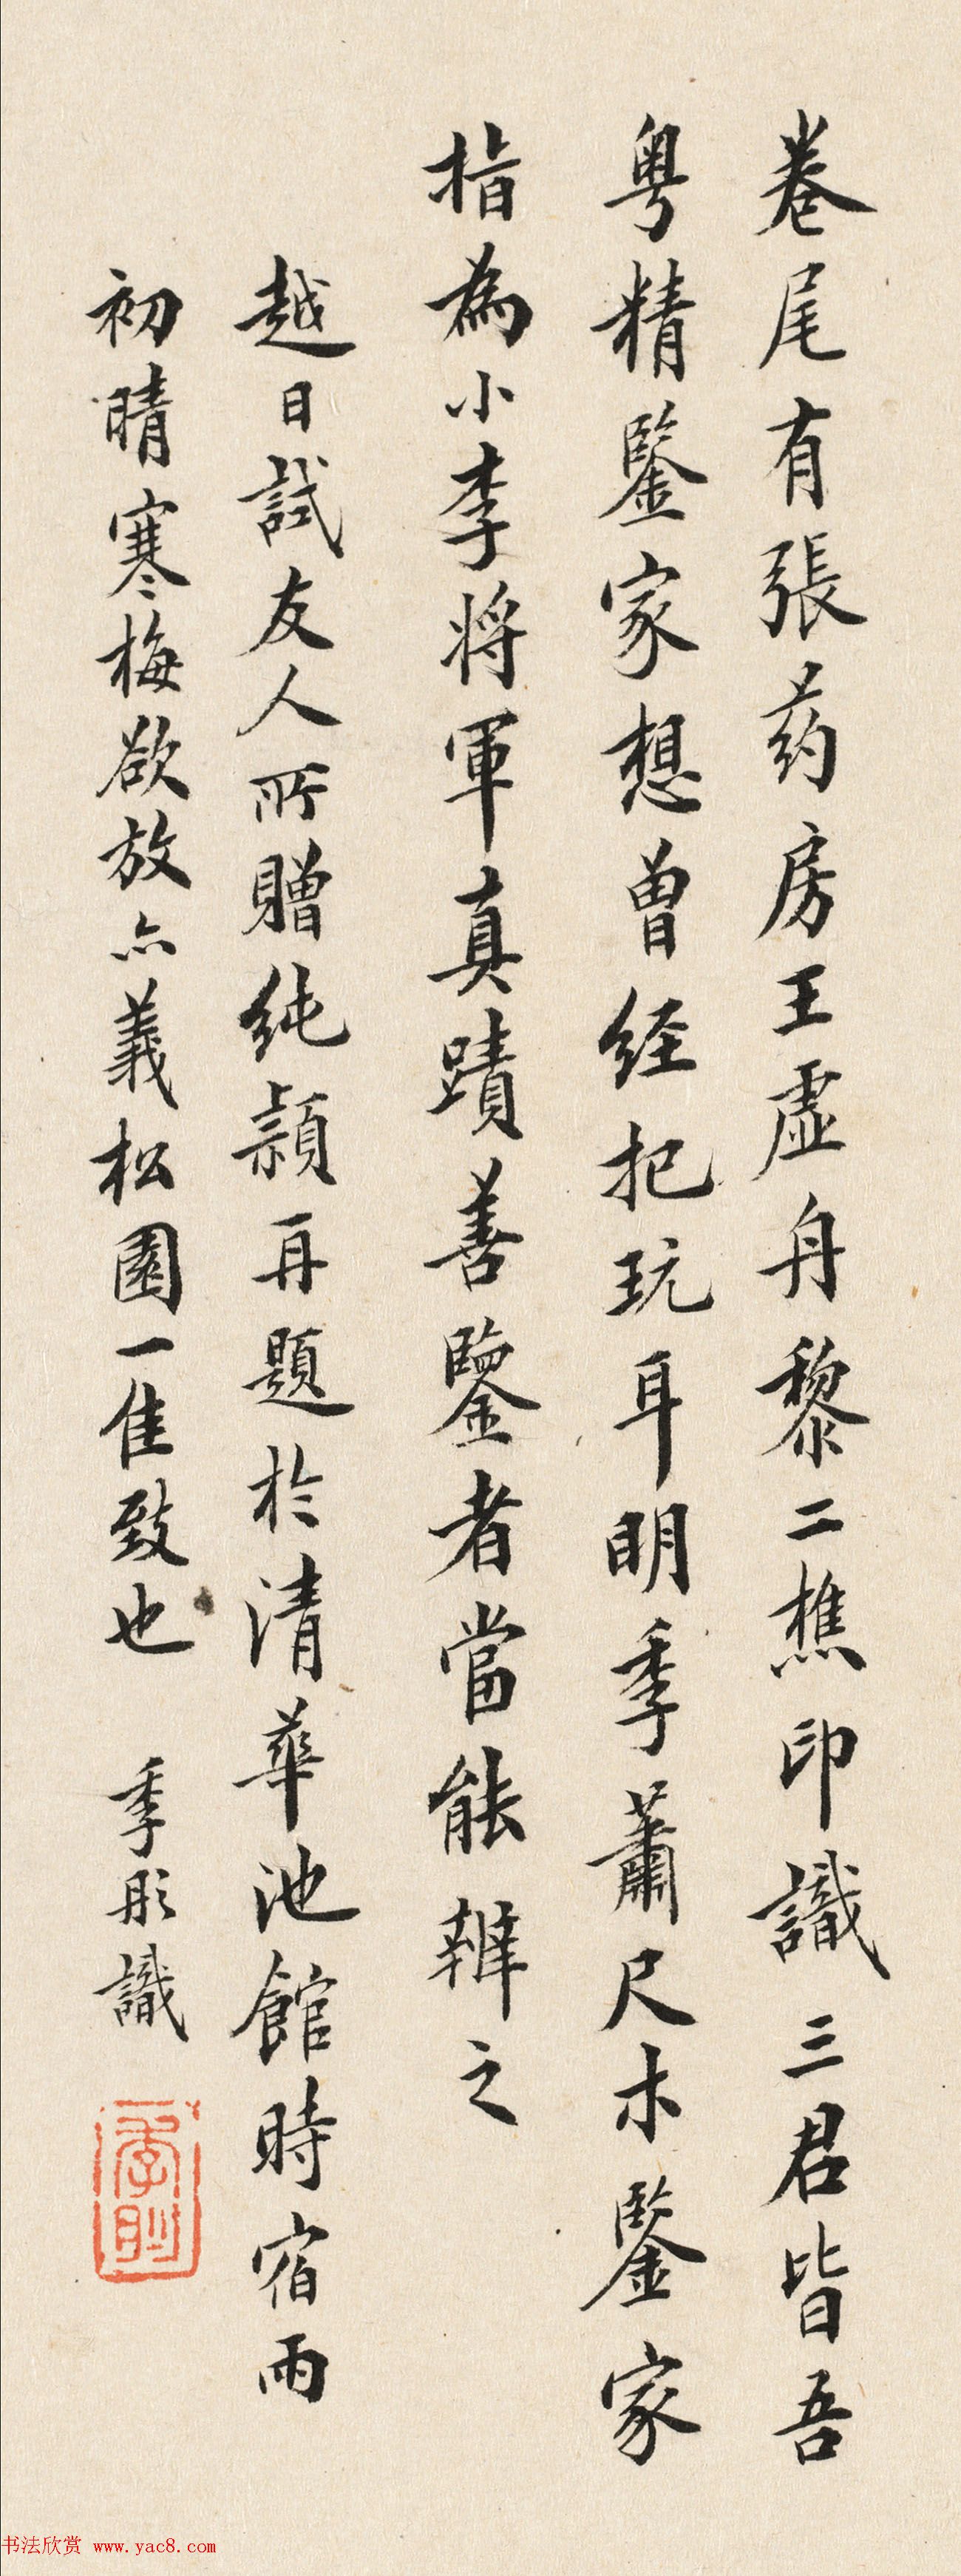 卷尾有張药房王虛舟黎二樵印識三君皆吾
粤精鑒家想曾经把玩耳明季蕭尺木鑒家
指為小李将軍真蹟善鑒者當能辨之
越日試友人所贈純穎再題於清華池館時宿雨
初晴寒梅欲放亦義松園一佳致也 季彤識
书法欣赏 www.yac8.com